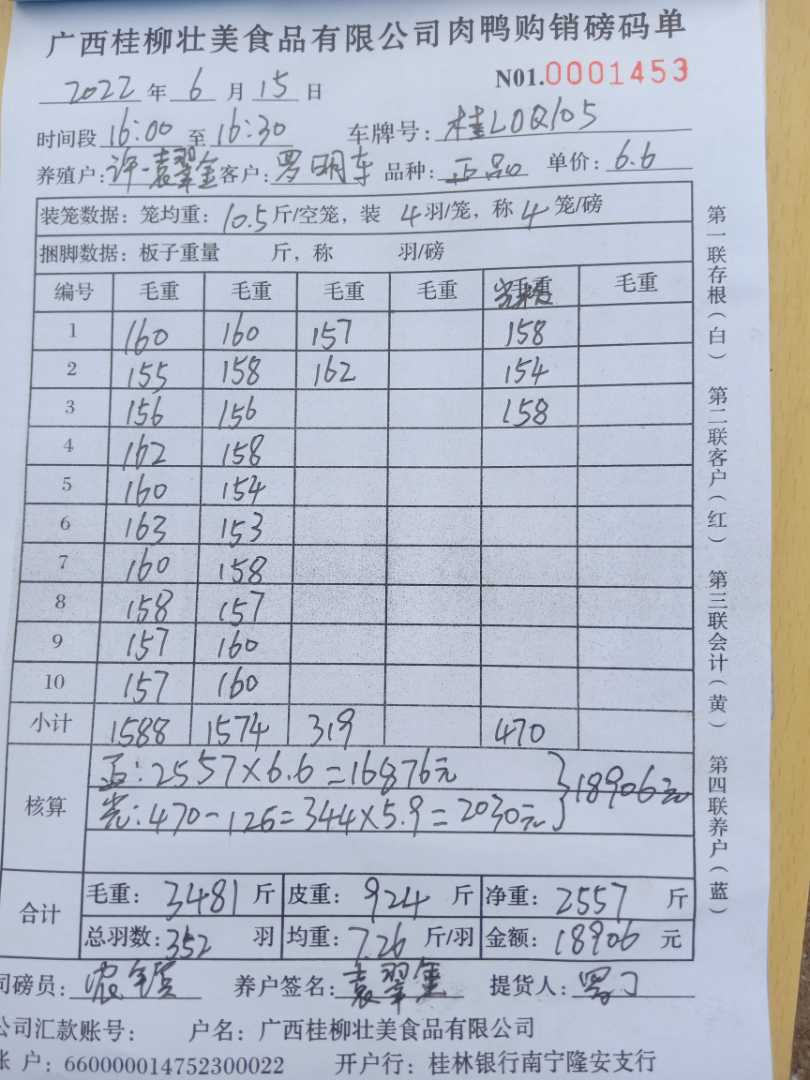 广西桂柳壮美食品有限公司肉鸭购销磅码单
2022 年 6 月 15 日 N01.0001453
时间段 16:00 至 16:30 车牌号: 桂L0Q105
养殖户: 许-袁翠金 客户: 罗明车 品种: 正品 单价: 6.6
装笼数据: 笼均重: 10.5 斤/空笼, 装 4 羽/笼, 称 4 笼/磅
捆脚数据: 板子重量 斤, 称 羽/磅
编号 毛重 毛重 毛重 毛重 毛重 毛重
1 160 160 157 158
2 155 158 162 154
3 156 156 158
4 162 158
5 160 154
6 163 153
7 160 158
8 158 157
9 157 160
10 157 160
小计 1588 1574 319 470
核算
正: 2557×6.6=16876元
光: 470-126=344×5.9=2030元 }18906元
合计
毛重: 3481 斤 皮重: 924 斤 净重: 2557 斤
总羽数: 352 羽 均重: 7.26 斤/羽 金额: 18906 元
司磅员: 养户签名: 袁翠金 提货人:
公司汇款账号: 户名: 广西桂柳壮美食品有限公司
账 户: 660000014752300022 开户行: 桂林银行南宁隆安支行
第一联存根(白) 第二联客户(红) 第三联会计(黄) 第四联养户(蓝)